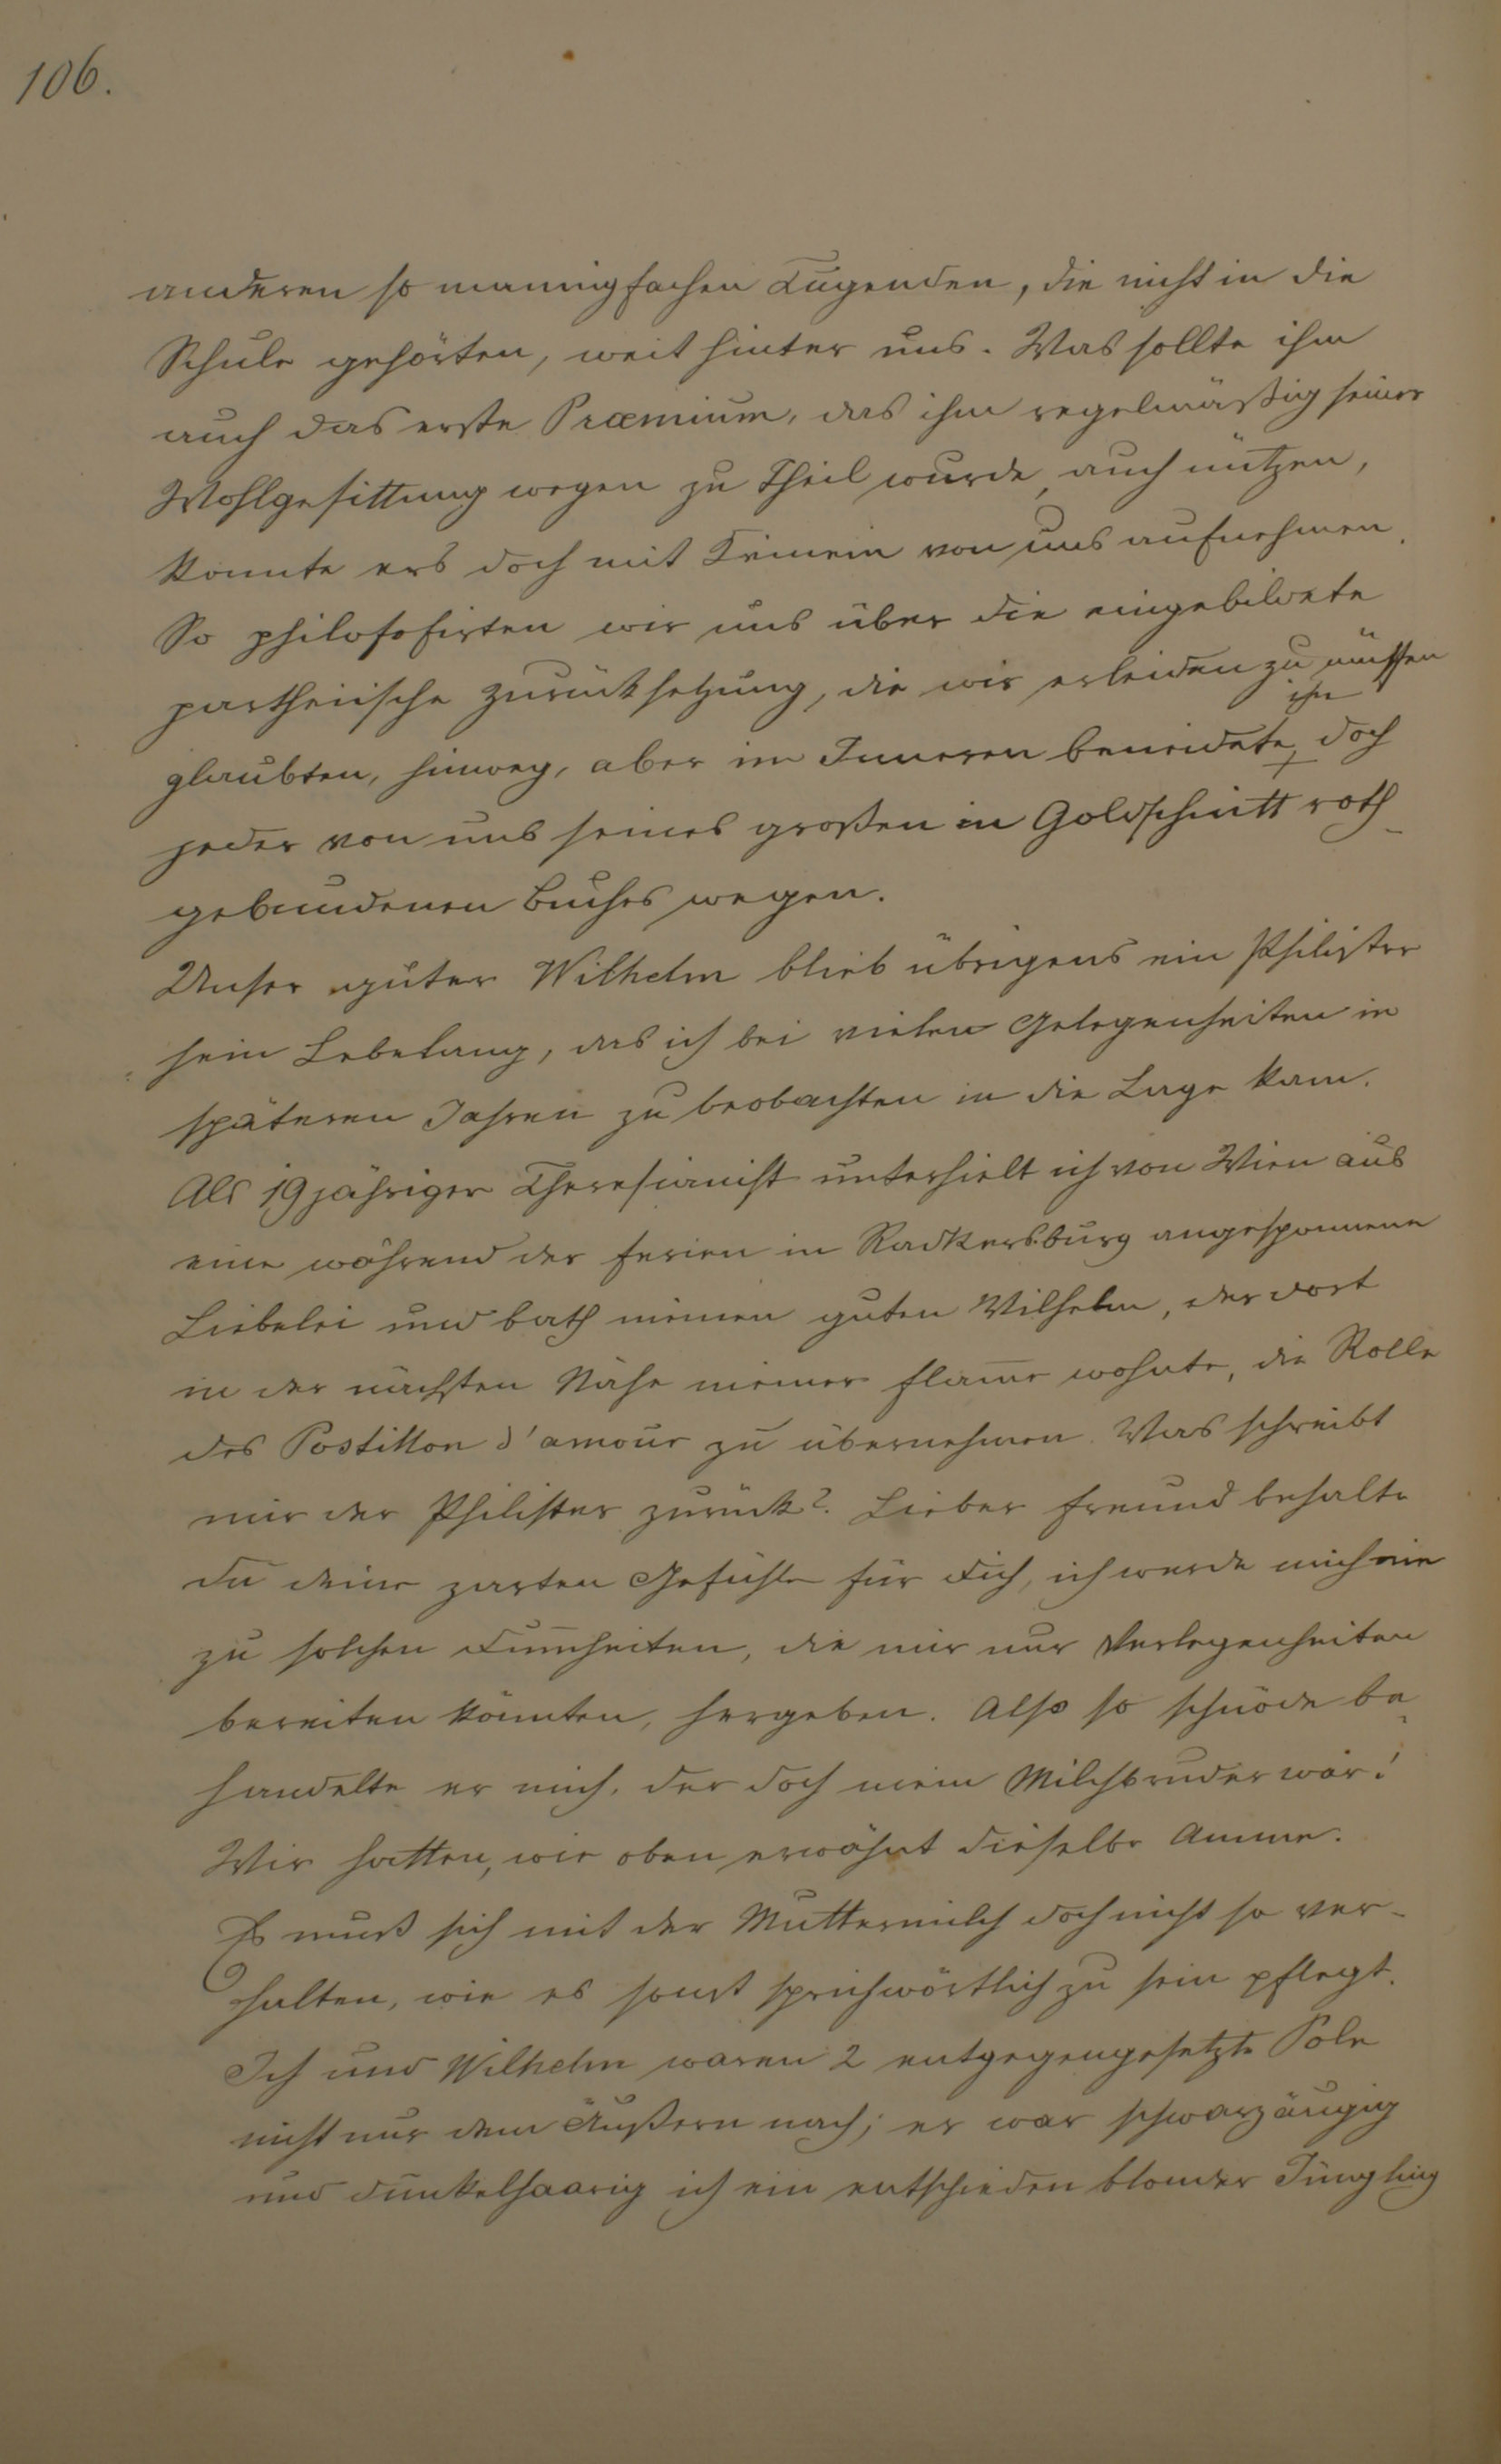 106.
anderen so mannigfachen Tugenden, die nicht in die
Schule gehörten, weit hinter uns. Was sollte ihm
auch das erste Præmium, das ihm regelmäßig seiner
Wohlgesittung wegen zu Theil wurde, auch nützen,
konnte ers doch mit Keinem von uns aufnehmen.
So philosofirten wir uns über die eingebildete
partheiische Zurücksetzung, die wir erleiden zu müssen
glaubten, hinweg, aber im Inneren beneidete ihn doch
jeder von uns seines großen in Goldschnitt roth-
gebundenen Buches wegen.
Unser guter Wilhelm blieb übrigens ein Philister
sein Lebelang, das ich bei vielen Gelegenheiten in
späteren Jahren zu beobachten in die Lage kam.
Als 19 jähriger Theresianist unterhielt ich von Wien aus
eine während der Ferien in Radkersburg angesponnene
Liebelei und bath meinen guten Wilhelm, der dort
in der nächsten Nähe meiner Flam̅e wohnte, die Rolle
des Postillon d'amour zu übernehmen. Was schreibt
mir der Philister zurück?. Lieber Freund behalte
Du deine zarten Gefühle für Dich, ich werde mich nie
zu solchen Dum̅heiten, die mir nur Verlegenheiten
bereiten könnten, hergeben. Also so schnöde be-
handelte er mich, der doch mein Milchbruder war!
Wir hatten, wie oben erwähnt dieselbe Amme.
Es muß sich mit der Muttermilch doch nicht so ver-
halten, wie es sonst sprichwörtlich zu sein pflegt.
Ich und Wilhelm waren 2 entgegengesetzte Pole
nicht nur dem Äußern nach; er war schwarzäugig
und dunkelhaarig ich ein entschieden blonder Jüngling